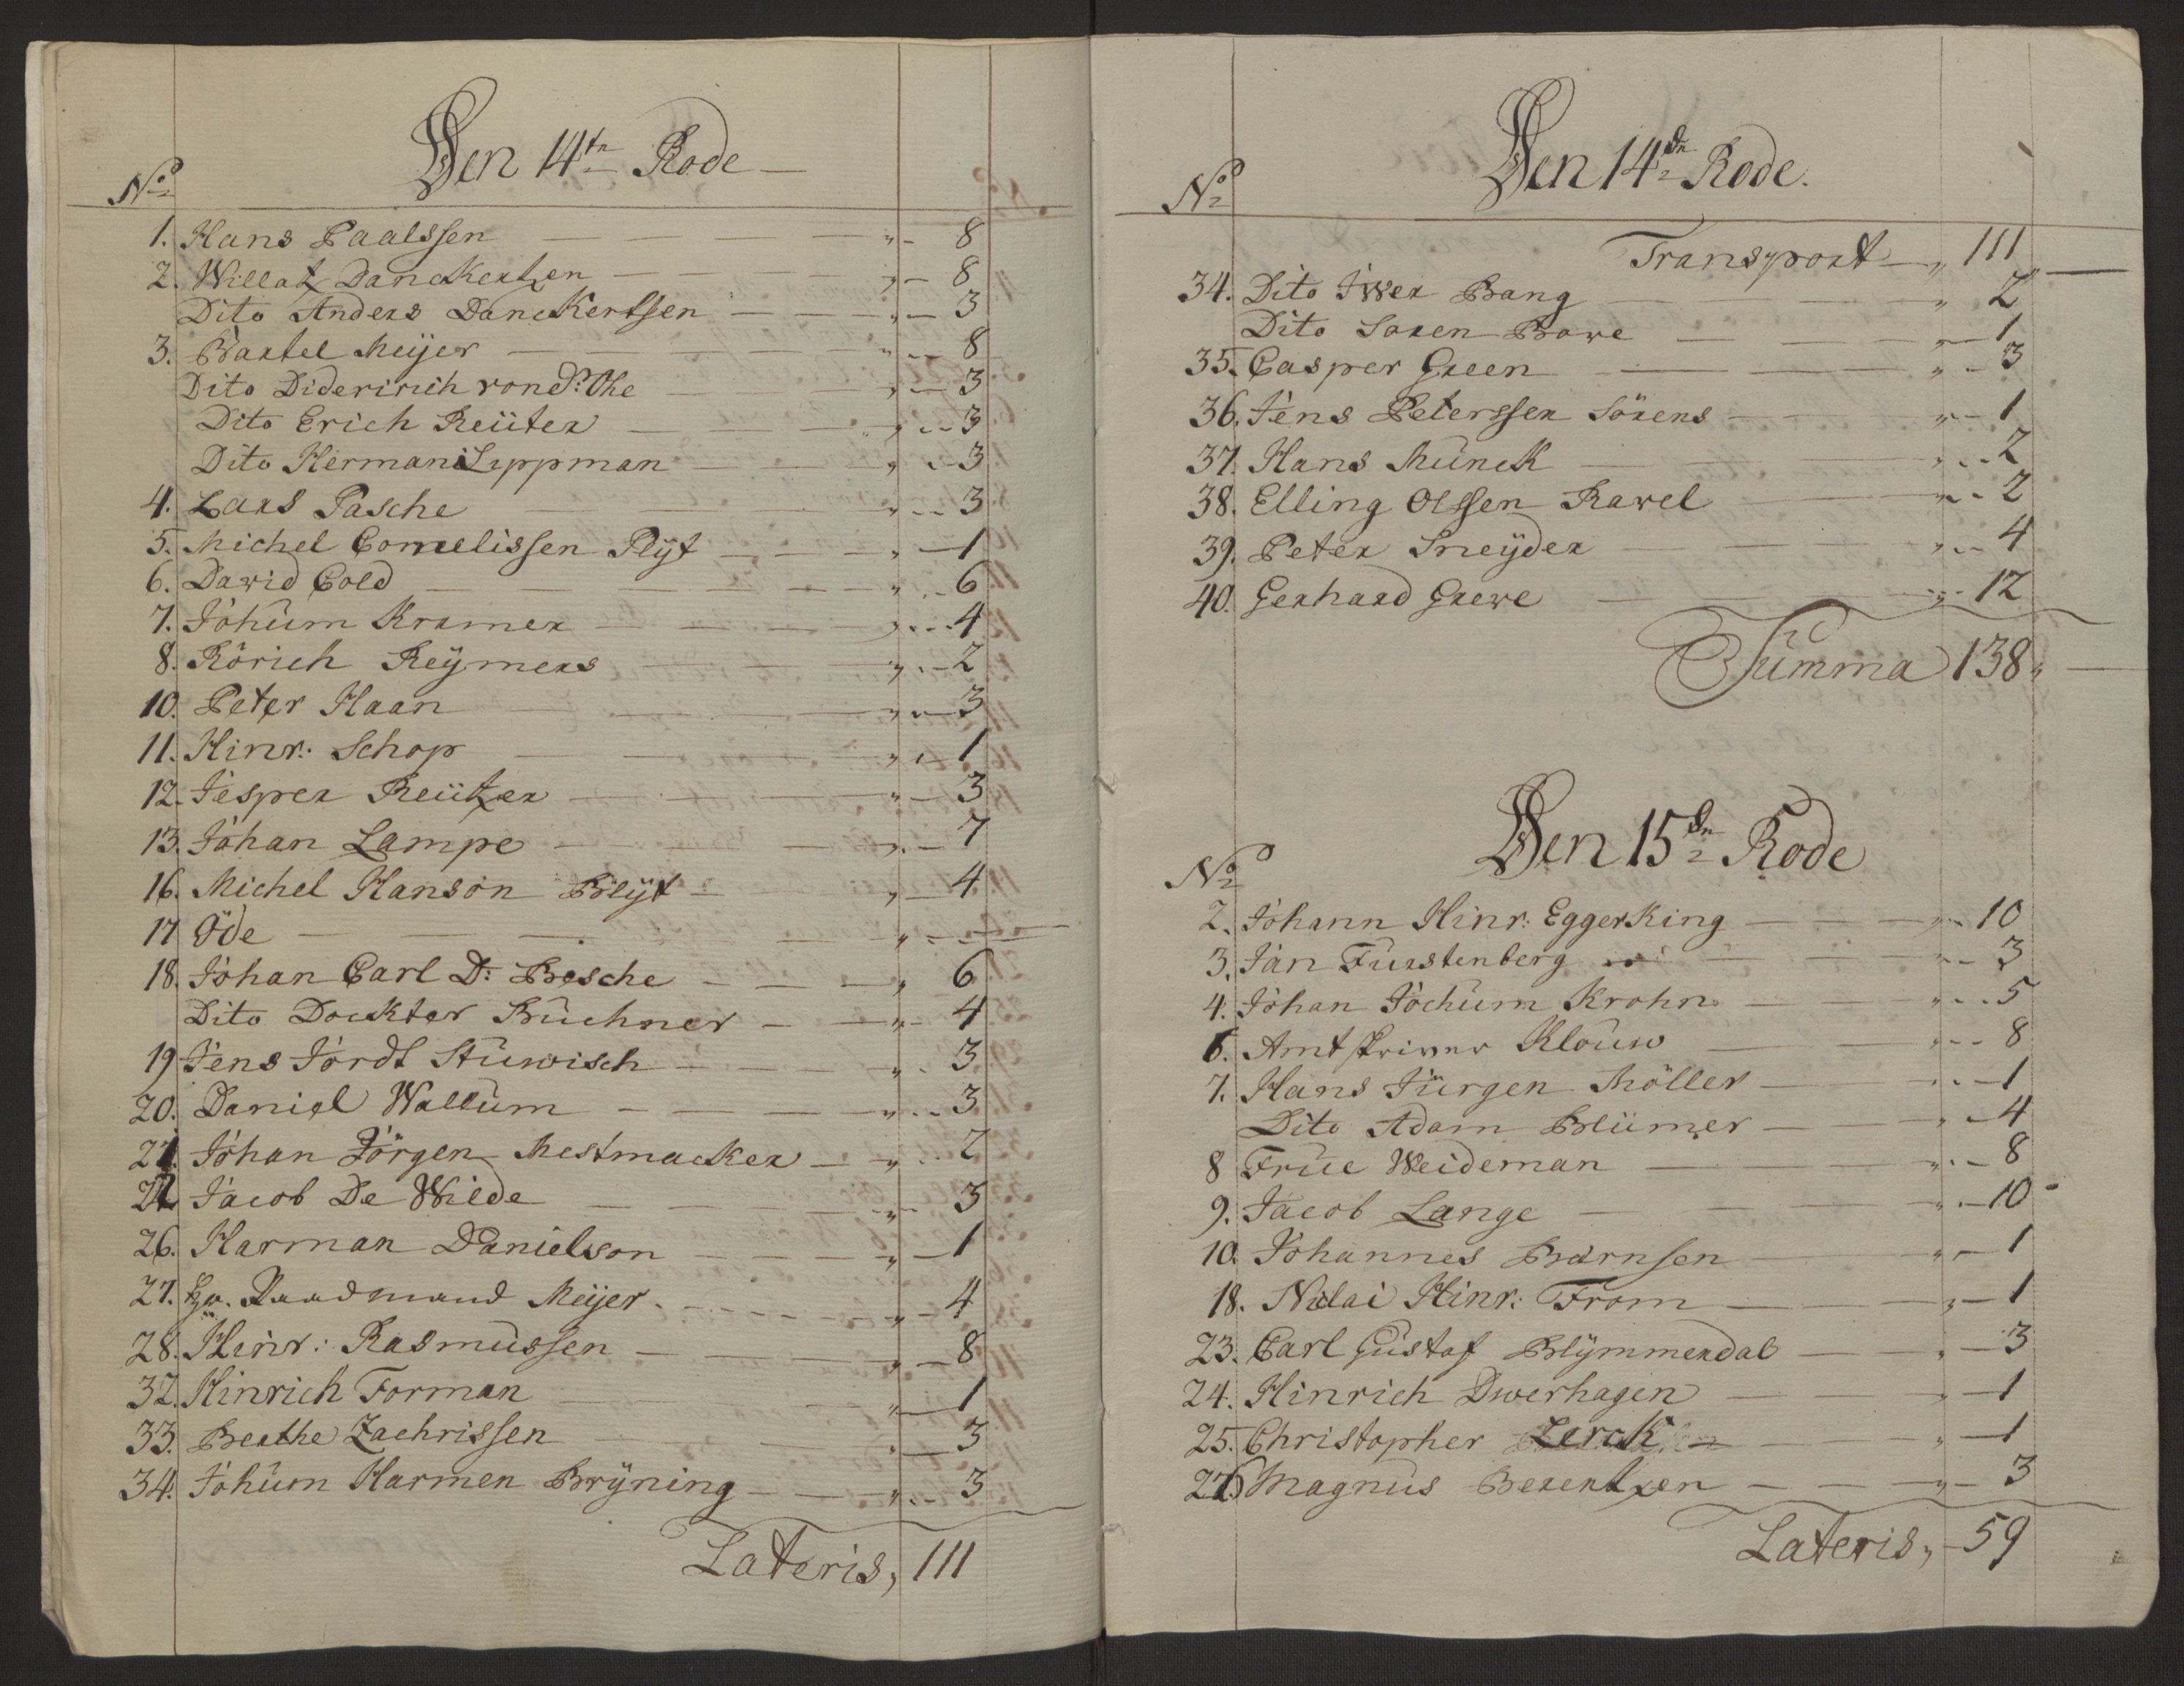 Den 14tn Rode
No
1. Hans Paalssen — „ - 8
2. Willatz Danckertzen — „ - 8
Dito Anders Danckertssen — „ - 3
3. Bartel Meÿer — „ - 8
Dito Didericich von d: Ohe — „ - 3
Dito Erich Reüter — „ - 3
Dito Herman Lippman — „ - 3
4. Lars Pasche — „ - 3
5. Michel Cornelissen Plÿt — „ - 1
6. David Cold — „ - 6
7. Johum Kramer — „ - 4
8. Rörich Reÿmers — „ - 2
10. Peter Haan — „ - 3
11. Hinr: Schop — „ - 1
12. Jesper Reützer — „ - 3
13. Johan Lampe — „ - 7
16. Michel Hanson Blÿt — „ - 4
17 Öde — „ - —
18. Johan Carl D: Besche — „ 6
Dito Dockter Büchner — „ - 4
19 Jens Jordt Stuwisch — „ - 3
20. Daniel Wallum — „ - 3
21. Johan Jörgen Mestmacker — „ - 2
22 Jacob De Wilde — „ - 3
26. Harman Danielson — „ - 1
27. Hr. Raadmand Meÿer — „ - 4
28. Hinr: Rasmussen — „ - 8
32. Hinrich Forman — „ - 1
33. Berthe Zachrissen — „ - 3
34. Johum Harmen Brÿning — „ - 3
Lateris, 111
Den 14dn Rode.
No
Transport — „ 111
34. Dito Iwer Bang — „ 2
Dito Soren Bowe — „ - 1
35. Casper Green — „ - 3
36. Jens Peterssen Sörens — „ - 1
37. Hans Munck — „ - 2
38. Elling Olssen Ravel — „ - 2
39. Peter Sneÿder — „ - 4
40. Gerhard Greve — „ - 12
Summa 138„ —
Den 15dn Rode
No
2. Johann Hinr: Eggerking — „ - 10
3. Jan Furstenberg — „ - 3
4. Johan Jochum Krohn — „ - 5
6. Amtskriver Klouw — „ - 8
7. Hans Jürgen Möller — „ - 1
Dito Adam Blümer — „ - 4
8 Frue Weideman — „ - 8
9. Jacob Lange — „ - 10
10. Johannes Barnsen — „ - 1
18. Niclai Hinr: From — „ - 1
23. Carl Gustaf Blÿmmendal — „ - 3
24. Hinrich Dwerhagen — „ - 1
25. Christopher Lerck — „ - 1
Magnus Berentzen — „ - 3
Lateris, - 59